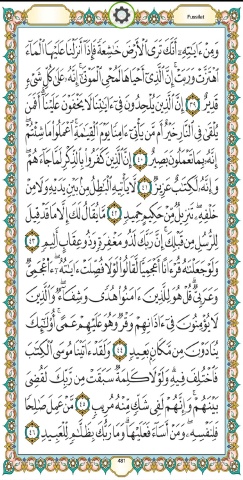 Fussilat
وَمِنْ ءَايَٰتِهِۦٓ أَنَّكَ تَرَى ٱلْأَرْضَ خَٰشِعَةً فَإِذَآ أَنزَلْنَا عَلَيْهَا ٱلْمَآءَ
ٱهْتَزَّتْ وَرَبَتْ ۚ إِنَّ ٱلَّذِىٓ أَحْيَاهَا لَمُحْىِ ٱلْمَوْتَىٰٓ ۚ إِنَّهُۥ عَلَىٰ كُلِّ شَىْءٍ
قَدِيرٌ ٣٩ إِنَّ ٱلَّذِينَ يُلْحِدُونَ فِىٓ ءَايَٰتِنَا لَا يَخْفَوْنَ عَلَيْنَآ ۗ أَفَمَن
يُلْقَىٰ فِى ٱلنَّارِ خَيْرٌ أَم مَّن يَأْتِىٓ ءَامِنًا يَوْمَ ٱلْقِيَٰمَةِ ۚ ٱعْمَلُوا۟ مَا شِئْتُمْ ۖ
إِنَّهُۥ بِمَا تَعْمَلُونَ بَصِيرٌ ٤٠ إِنَّ ٱلَّذِينَ كَفَرُوا۟ بِٱلذِّكْرِ لَمَّا جَآءَهُمْ ۖ
وَإِنَّهُۥ لَكِتَٰبٌ عَزِيزٌ ٤١ لَّا يَأْتِيهِ ٱلْبَٰطِلُ مِنۢ بَيْنِ يَدَيْهِ وَلَا مِنْ
خَلْفِهِۦ ۖ تَنزِيلٌ مِّنْ حَكِيمٍ حَمِيدٍ ٤٢ مَّا يُقَالُ لَكَ إِلَّا مَا قَدْ قِيلَ
لِلرُّسُلِ مِن قَبْلِكَ ۚ إِنَّ رَبَّكَ لَذُو مَغْفِرَةٍ وَذُو عِقَابٍ أَلِيمٍ ٤٣
وَلَوْ جَعَلْنَٰهُ قُرْءَانًا أَعْجَمِيًّا لَّقَالُوا۟ لَوْلَا فُصِّلَتْ ءَايَٰتُهُۥٓ ۖ ءَا۬عْجَمِىٌّ
وَعَرَبِىٌّ ۗ قُلْ هُوَ لِلَّذِينَ ءَامَنُوا۟ هُدًى وَشِفَآءٌ ۖ وَٱلَّذِينَ
لَا يُؤْمِنُونَ فِىٓ ءَاذَانِهِمْ وَقْرٌ وَهُوَ عَلَيْهِمْ عَمًى ۚ أُو۟لَٰٓئِكَ
يُنَادَوْنَ مِن مَّكَانٍۭ بَعِيدٍ ٤٤ وَلَقَدْ ءَاتَيْنَا مُوسَى ٱلْكِتَٰبَ
فَٱخْتُلِفَ فِيهِ ۗ وَلَوْلَا كَلِمَةٌ سَبَقَتْ مِن رَّبِّكَ لَقُضِىَ
بَيْنَهُمْ ۚ وَإِنَّهُمْ لَفِى شَكٍّ مِّنْهُ مُرِيبٍ ٤٥ مَّنْ عَمِلَ صَٰلِحًا
فَلِنَفْسِهِۦ ۖ وَمَنْ أَسَآءَ فَعَلَيْهَا ۗ وَمَا رَبُّكَ بِظَلَّٰمٍ لِّلْعَبِيدِ ٤٦
481